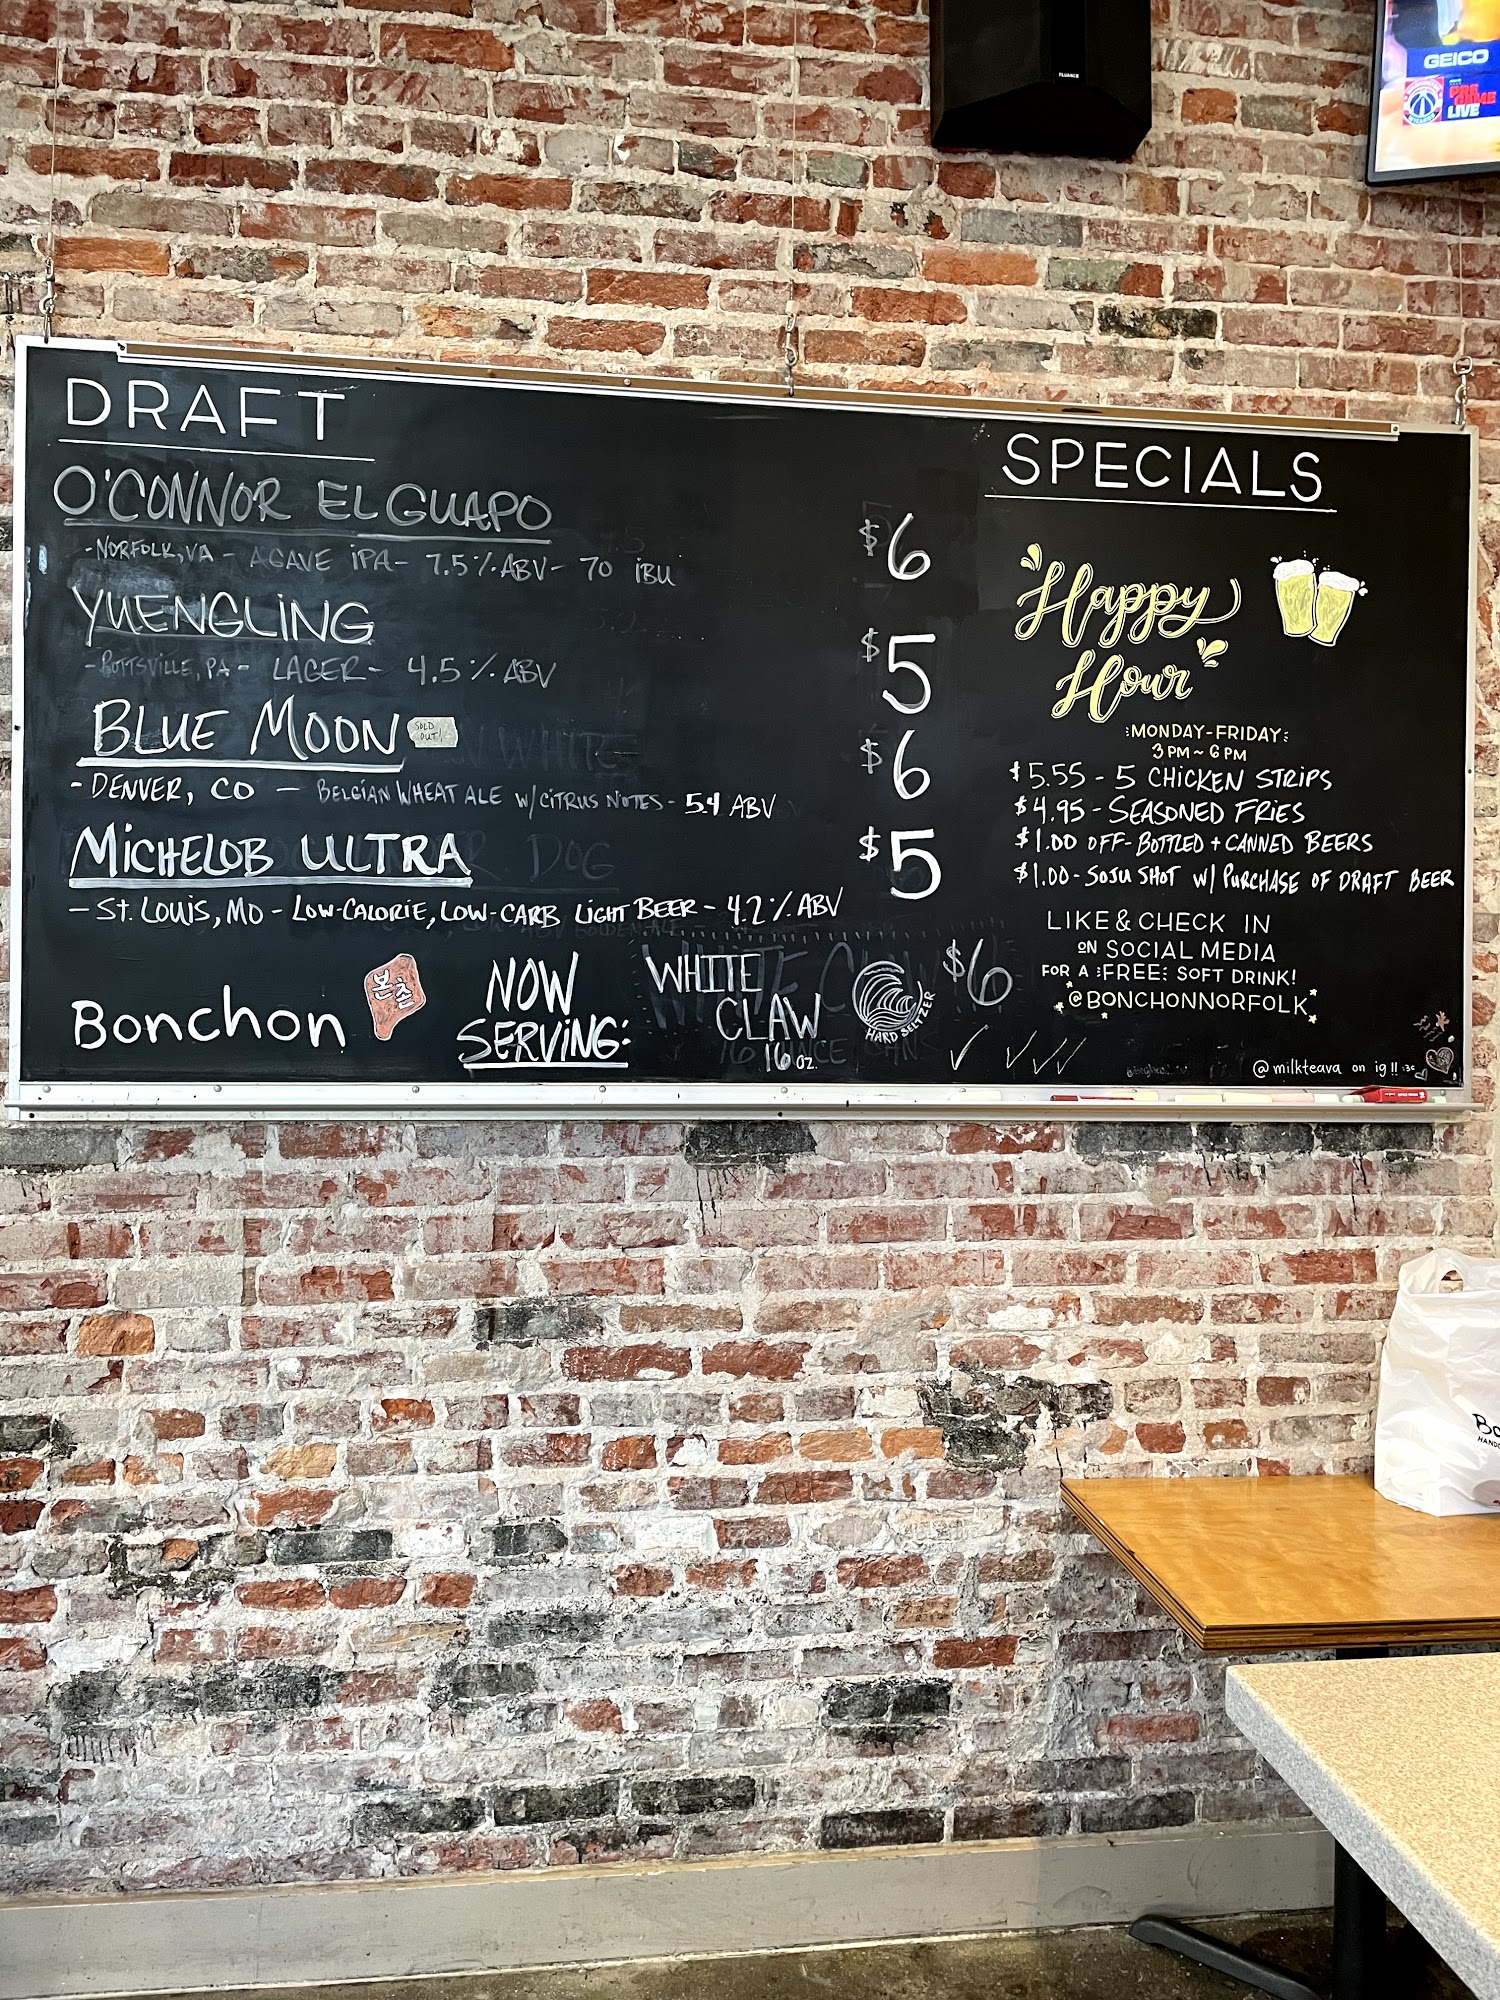 FLUANCE
GEICO
PRE
GAME
LIVE
DRAFT
O'CONNOR EL GUAPO
$6
-NORFOLK, VA - AGAVE IPA - 7.5% ABV - 70 IBU
YUENGLING
$5
-POTTSVILLE, PA - LAGER - 4.5% ABV
BLUE MOON
SOLD
OUT!
$6
-DENVER, CO - BELGIAN WHEAT ALE W/ CITRUS NOTES - 5.4 ABV
MICHELOB ULTRA
$5
- ST. LOUIS, MO - LOW-CALORIE, LOW-CARB LIGHT BEER - 4.2% ABV
Bonchon
본촌
NOW
SERVING:
WHITE
CLAW
16 OZ.
HARD SELTZER
$6
SPECIALS
Happy
Hour
MONDAY-FRIDAY
3 PM ~ 6 PM
$5.55 - 5 CHICKEN STRIPS
$4.95 - SEASONED FRIES
$1.00 OFF - BOTTLED + CANNED BEERS
$1.00 - SOJU SHOT W/ PURCHASE OF DRAFT BEER
LIKE & CHECK IN
ON SOCIAL MEDIA
FOR A FREE SOFT DRINK!
@BONCHONNORFOLK
@milkteava on ig!! :3c